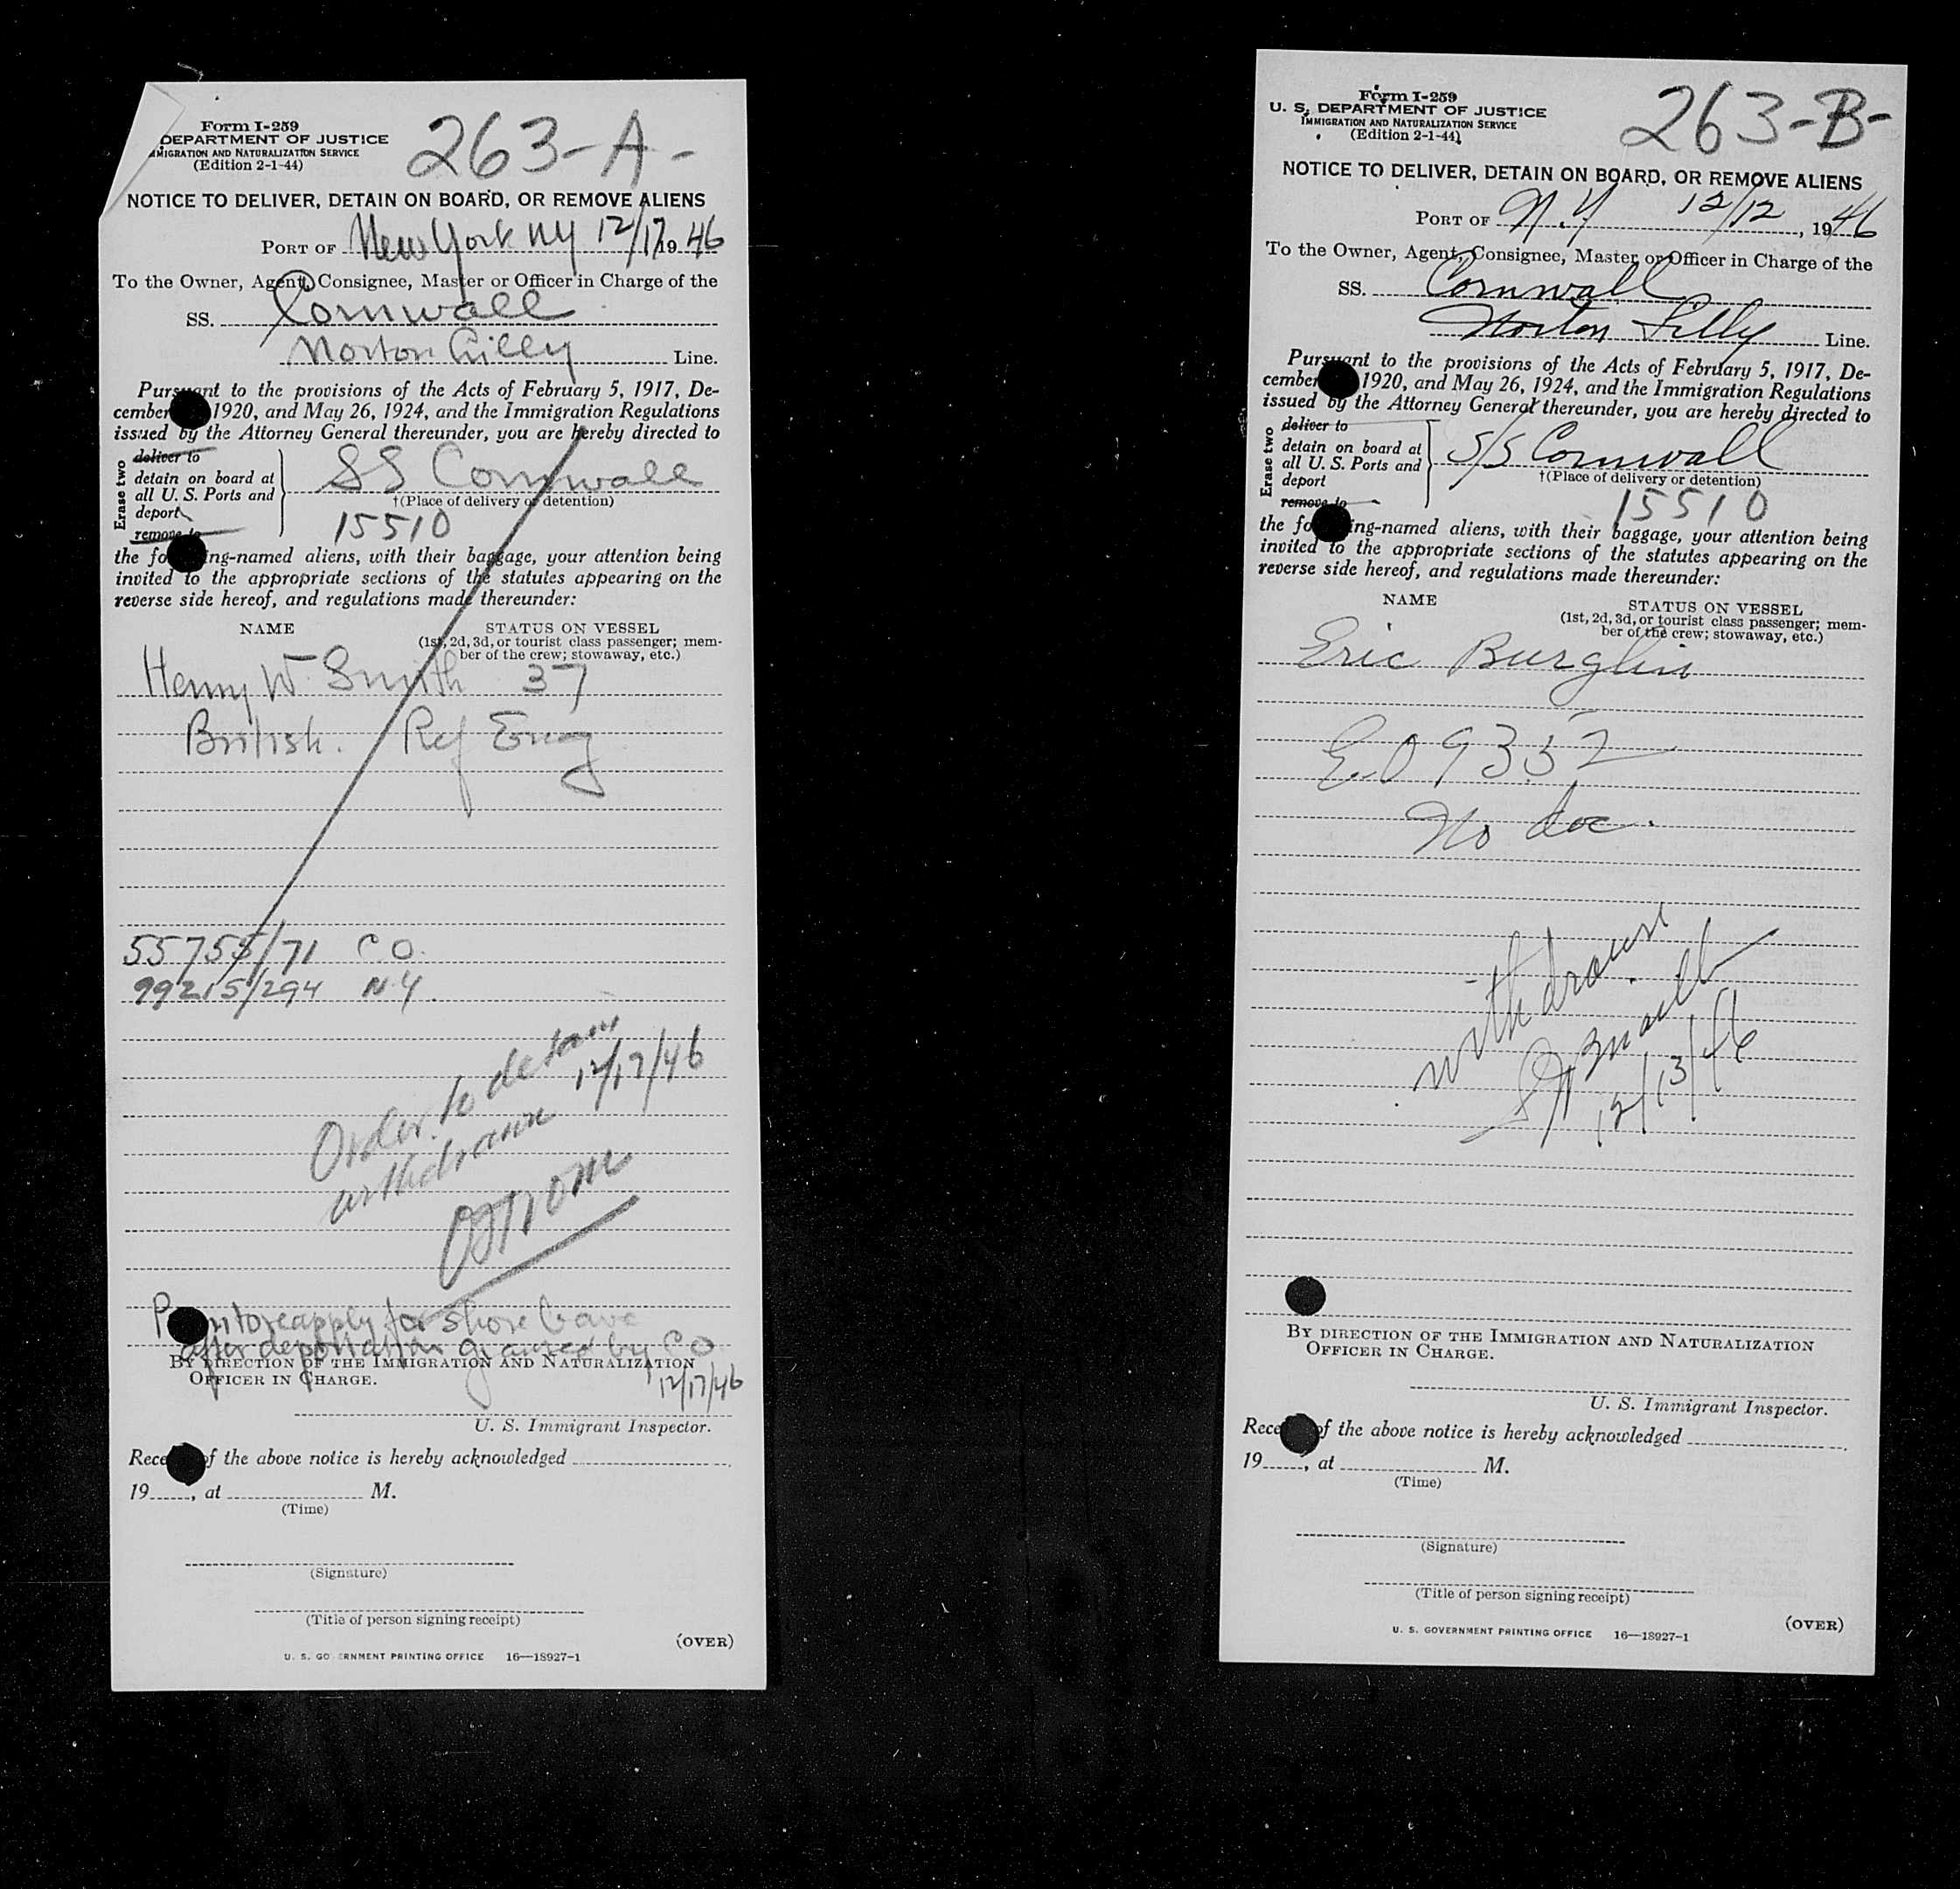 Form I-259
DEPARTMENT OF JUSTICE
IMMIGRATION AND NATURALIZATION SERVICE
(Edition 2-1-44)
263-A-
NOTICE TO DELIVER, DETAIN ON BOARD, OR REMOVE ALIENS
PORT OF New York NY 12/17 1946
To the Owner, Agent, Consignee, Master or Officer in Charge of the
SS. Cornwall
Norton Lilly Line.
Pursuant to the provisions of the Acts of February 5, 1917, De-
cember 1920, and May 26, 1924, and the Immigration Regulations
issued by the Attorney General thereunder, you are hereby directed to
Erase two
deliver to
detain on board at
all U. S. Ports and
deport
remove to
SS Cornwall
†(Place of delivery or detention)
15510
the following-named aliens, with their baggage, your attention being
invited to the appropriate sections of the statutes appearing on the
reverse side hereof, and regulations made thereunder:
NAME
STATUS ON VESSEL
(1st, 2d, 3d, or tourist class passenger; mem-
ber of the crew; stowaway, etc.)
Henry W. Smith 37
British. Ref Eng
55755/71 C O.
99215/294 N.Y.
Order to detain
withdrawn 12/17/46
P to reapply for shore leave
after deportation granted by C O
12/17/46
BY DIRECTION OF THE IMMIGRATION AND NATURALIZATION
OFFICER IN CHARGE.
U. S. Immigrant Inspector.
Receipt of the above notice is hereby acknowledged
19 , at M.
(Time)
(Signature)
(Title of person signing receipt)
(OVER)
U. S. GOVERNMENT PRINTING OFFICE 16—18927-1
Form I-259
U. S. DEPARTMENT OF JUSTICE
IMMIGRATION AND NATURALIZATION SERVICE
(Edition 2-1-44)
263-B-
NOTICE TO DELIVER, DETAIN ON BOARD, OR REMOVE ALIENS
PORT OF N.Y 12/12, 1946
To the Owner, Agent, Consignee, Master or Officer in Charge of the
SS. Cornwall
Norton Lilly Line.
Pursuant to the provisions of the Acts of February 5, 1917, De-
cember 1920, and May 26, 1924, and the Immigration Regulations
issued by the Attorney General thereunder, you are hereby directed to
Erase two
deliver to
detain on board at
all U. S. Ports and
deport
remove to
S/S Cornwall
†(Place of delivery or detention)
15510
the following-named aliens, with their baggage, your attention being
invited to the appropriate sections of the statutes appearing on the
reverse side hereof, and regulations made thereunder:
NAME
STATUS ON VESSEL
(1st, 2d, 3d, or tourist class passenger; mem-
ber of the crew; stowaway, etc.)
Eric Burglin
E.O 9352
No doc.
withdrawn
12/13/46
BY DIRECTION OF THE IMMIGRATION AND NATURALIZATION
OFFICER IN CHARGE.
U. S. Immigrant Inspector.
Receipt of the above notice is hereby acknowledged
19 , at M.
(Time)
(Signature)
(Title of person signing receipt)
(OVER)
U. S. GOVERNMENT PRINTING OFFICE 16—18927-1